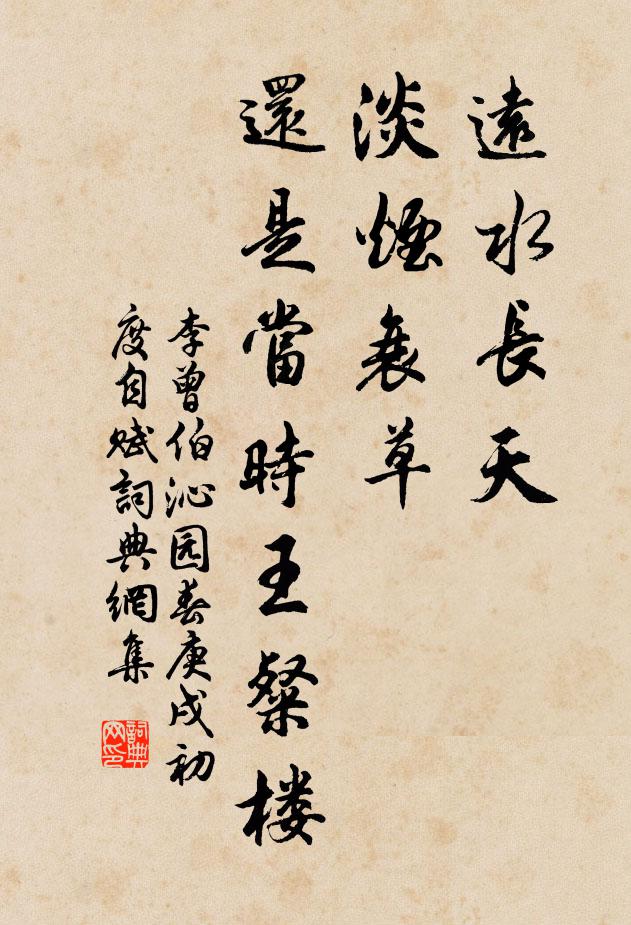 遠水長天
淡煙衰草
還是當時王粲楼
李曾伯沁园春庚戌初
度自赋詞典網集
詞典
网印